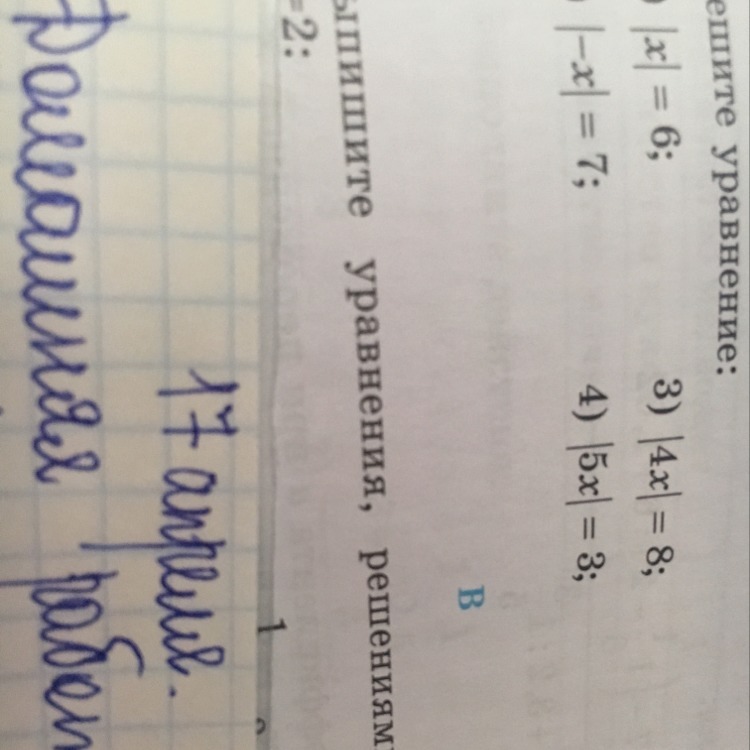 ешите уравнение:
) |x| = 6; 3) |4x| = 8;
) |−x| = 7; 4) |5x| = 3;
В
ыпишите уравнения, решениям
=2:
1
17 апреля.
Домашняя работ